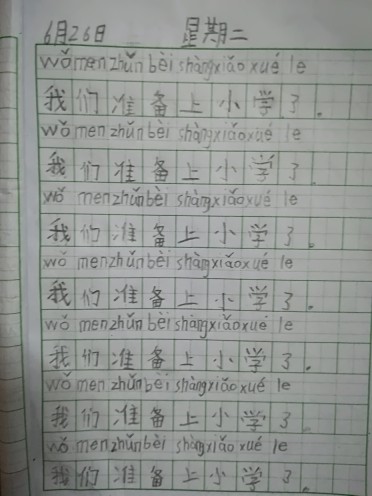 6月26日 星期二
wǒ men zhǔn bèi shàng xiǎo xué le
我们准备上小学了。
wǒ men zhǔn bèi shàng xiǎo xué le
我们准备上小学了.
wǒ men zhǔn bèi shàng xiǎo xué le
我们准备上小学了。
wǒ men zhǔn bèi shàng xiǎo xué le
我们准备上小学了。
wǒ men zhǔn bèi shàng xiǎo xué le
我们准备上小学了。
wǒ men zhǔn bèi shàng xiǎo xué le
我们准备上小学了
wǒ men zhǔn bèi shàng xiǎo xué le
我们准备上小学了。